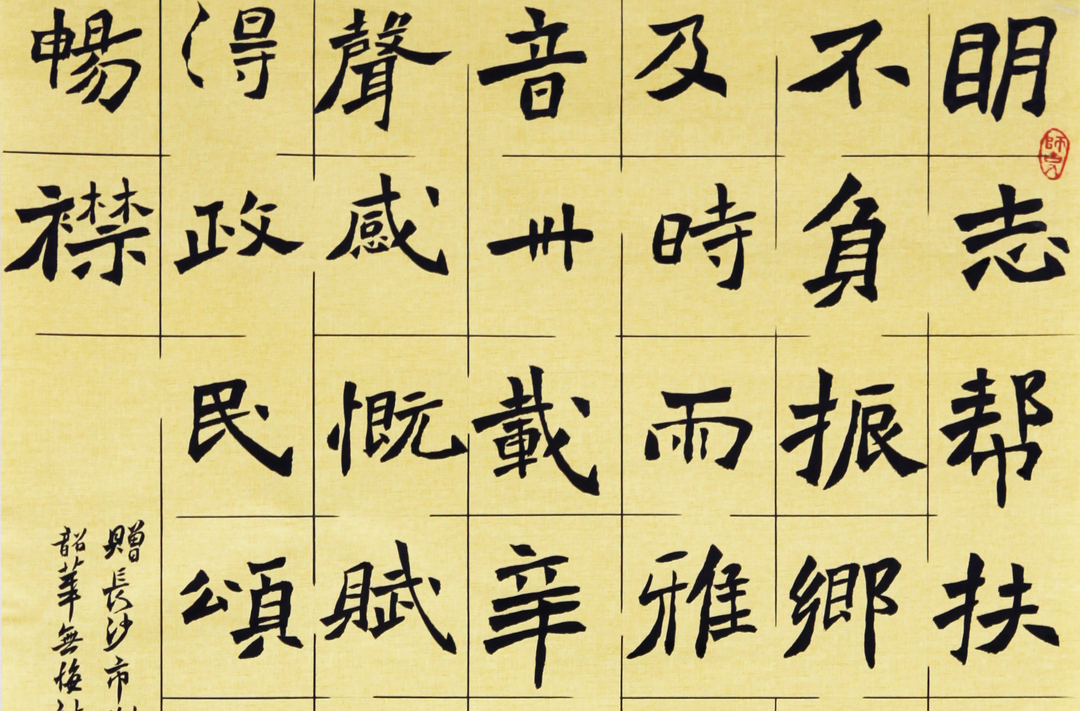 明志帮扶
不负振鄉
及時雨雅
音卅載辛
聲感慨賦
得政民頌
暢襟
贈長沙市
韶華無悔